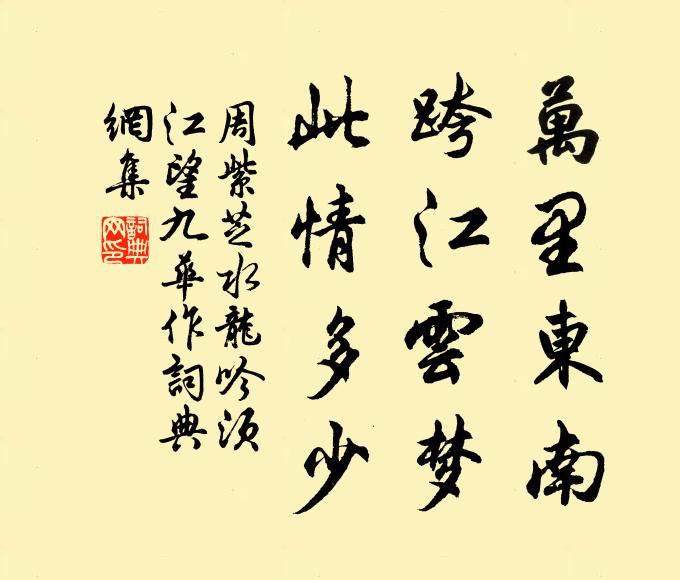 萬里東南
跨江雲梦
此情多少
周紫芝水龍吟須
江望九華作詞典
網集
詞典網印